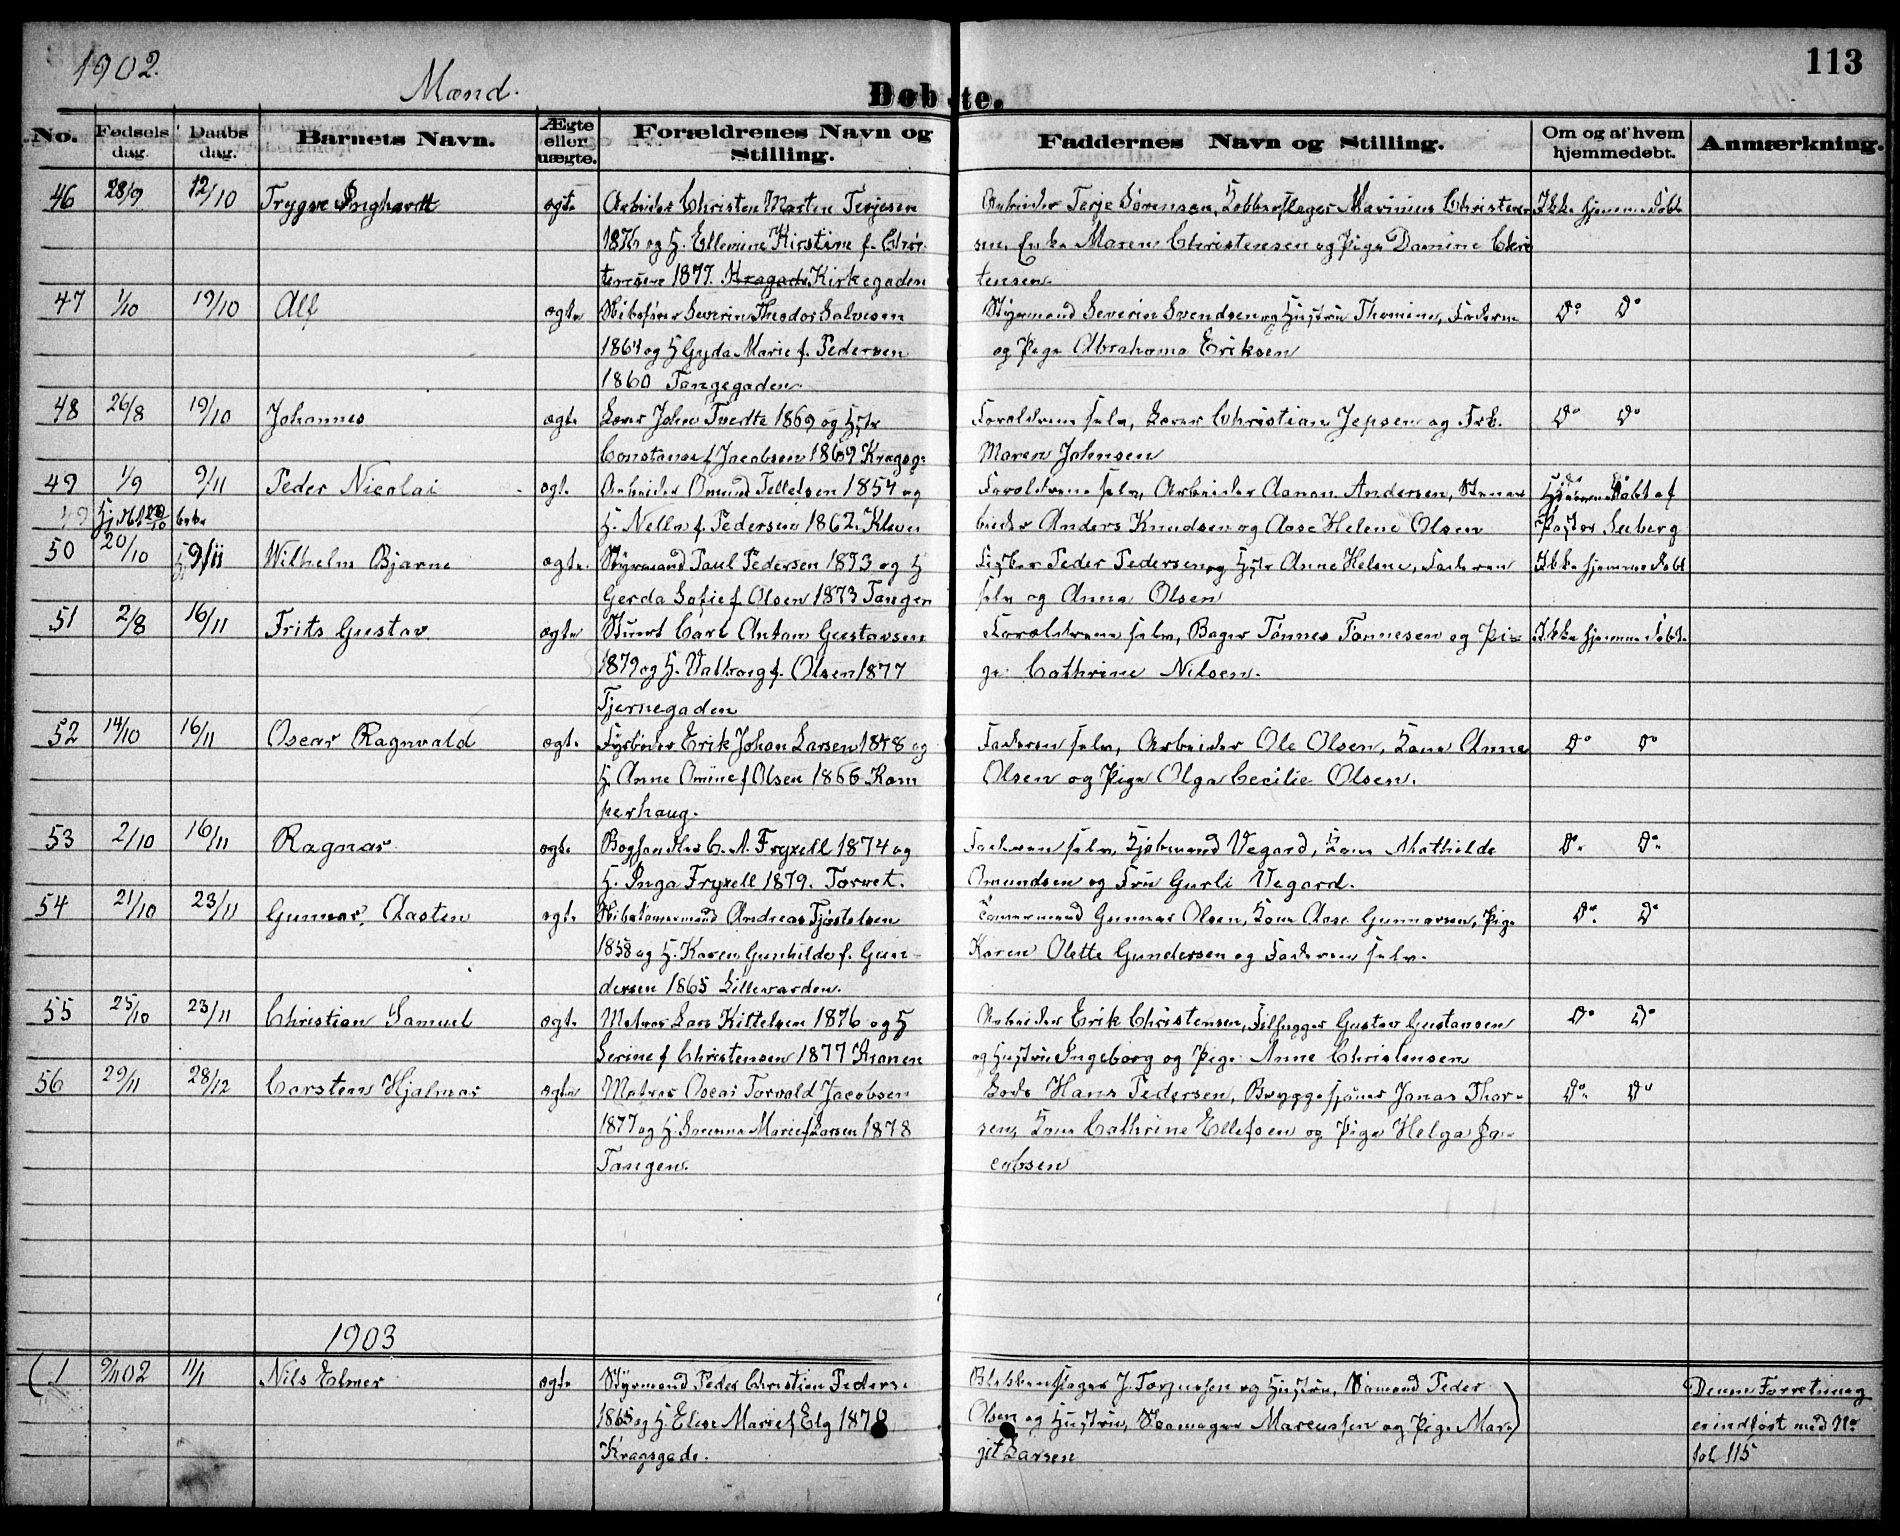 1902.
Mænd.
Døbte.
113
No.
Fødsels dag.
Daabs dag.
Barnets Navn.
Ægte eller uægte.
Forældrenes Navn og Stilling.
Faddernes Navn og Stilling.
Om og af hvem hjemmedøbt.
Anmærkning.
46 28/9 12/10 Trygve Inghardt ægte Arbeider Christen Marten Terjesen Arbeider Terje Sørensen, Kobberslager Marinius Christen Ikke hjemmedøbt
1876 og H. Ellevine Kirstine f. Chris- sen, Enke Maren Christensen og Pige Damine Chris
tensen 1877. Kragads Kirkegaden tensen.
47 1/10 19/10 Alf ægte Skibsfører Severin Theodor Salvesen Styrmand Severin Svendsen og Hustru Thomine, Faderen Do Do
1864 og H Gyda Marie f. Pedersen og Pige Abrahama Eriksen
1860 Tangegaden.
48 26/8 19/10 Johannes ægte Lærer John Tvedte 1869 og Hstr Forældrene selv, Lærer Christian Jepsen og Frk. Do Do
Constanse f Jacobsen 1869 Kragsg. Maren Johnsen
49 1/9 9/11 Peder Nicolai ægte Arbeider Omund Tellefsen 1854 og Forældrene selv, Arbeider Aanon Andersen, Hjemmedøbt af
H. Nella f. Pedersen 1862. Kleven Anders Knudsen og Aase Helene Olsen Pastor Seeberg
50 20/10 9/11 Wilhelm Bjarne ægte. Styrmand Paul Pedersen 1873 og H Fisker Peder Pedersen og Hstr Anne Helene, Faderen Ikke hjemmedøbt
Gerda Sofie f Olsen 1873 Tangen selv og Anna Olsen
51 2/8 16/11 Frits Gustav ægte Stuert Carl Anton Gustavsen Forældrene selv, Bager Tønnes Tønnesen og Pi- Ikke hjemmedøbt
1879 og H. Valborg f. Olsen 1877 ge Cathrine Nilsen.
Tjernegaden
52 14/10 16/11 Oscar Ragnvald ægte Fyrbøder Erik Johan Larsen 1878 og Faderen selv, Arbeider Ole Olsen, Kone Anne Do Do
H. Anne Omine f Olsen 1866 Kam Olsen og Pige Olga Cecilie Olsen.
perhaug.
53 2/10 16/11 Ragnar ægte Boghandler C. A. Fryxell 1874 og Faderen selv, Kjøbmand Vegard, Kone Mathilde Do Do
H. Inga Fryxell 1879. Torvet. Omundsen og Fru Gurli Vegard.
54 21/10 23/11 Gunnar Aasten ægte Skibstømmermand Andreas Tjøstelsen Tømmermand Gunnar Olsen, Kone Aase Gunnarsen, Pige Do Do
1858 og H. Karen Gunhilde f. Gun- Karen Olette Gundersen og Faderen selv.
dersen 1865 Lillevarden.
55 25/10 23/11 Christian Samuel ægte Matros Lars Kittelsen 1876 og H Arbeider Erik Christensen, Filhugger Gustav Gustavsen Do Do
Serine f Christensen 1877 Kranen og Hustru Ingeborg og Pige Anne Christensen
56 29/11 28/12 Carsten Hjalmar ægte Matros Oscar Torvald Jacobsen Lods Hans Pedersen, Bryggesjouer Jonas Thor- Do Do
1877 og H. Marie f Larsen 1878 sen, Kone Cathrine Ellefsen og Pige Helga Ja-
Tangen. cobsen
1903
(1 9/11 02 11/1 Nils Elmer ægte Styrmand Peder Christian Peders. Blikkenslager J. Torjussen og Hustru, Sømand Peder Denne Forretning
1865 og H. Elise Marie f Elg 1870 Olsen og Hustru, Skomager Marcussen og Pige Mar) er indført med No
Kragsgade. git Larsen fol 115